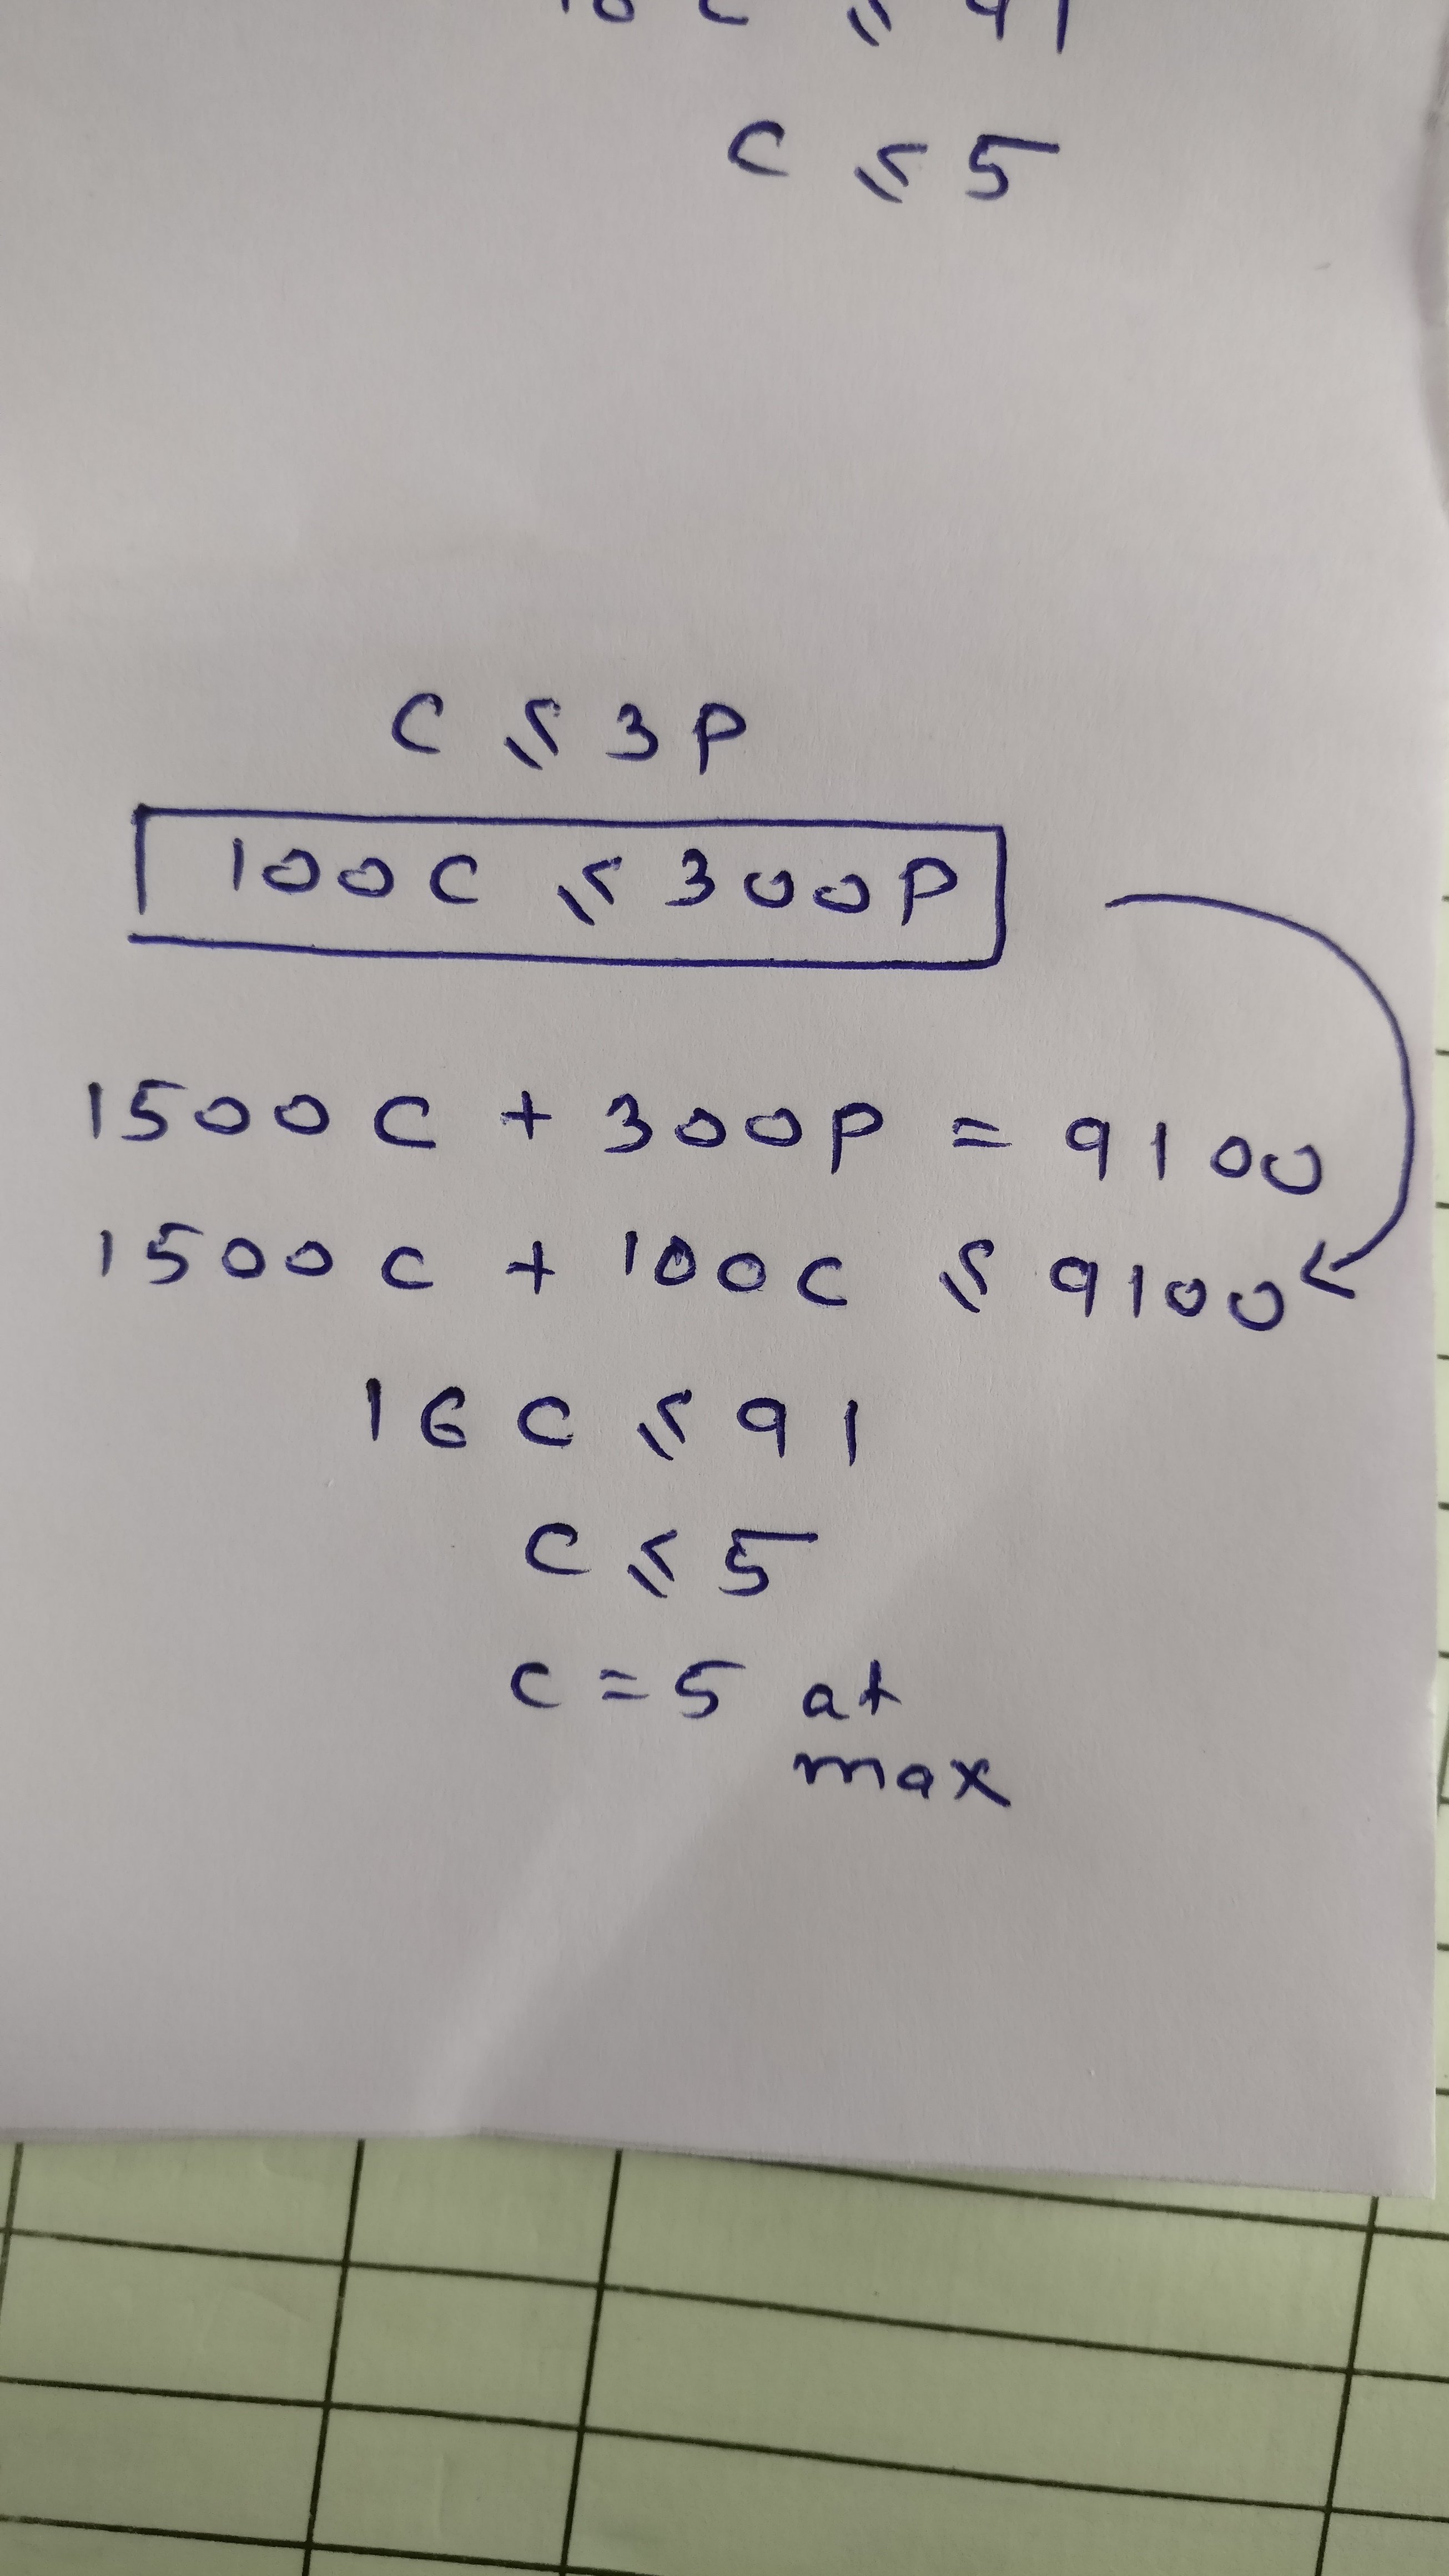 C ≤ 5
C ≤ 3P
100C ≤ 300P
1500C + 300P = 9100
1500C + 100C ≤ 9100
16C ≤ 91
C ≤ 5
C = 5 at
max